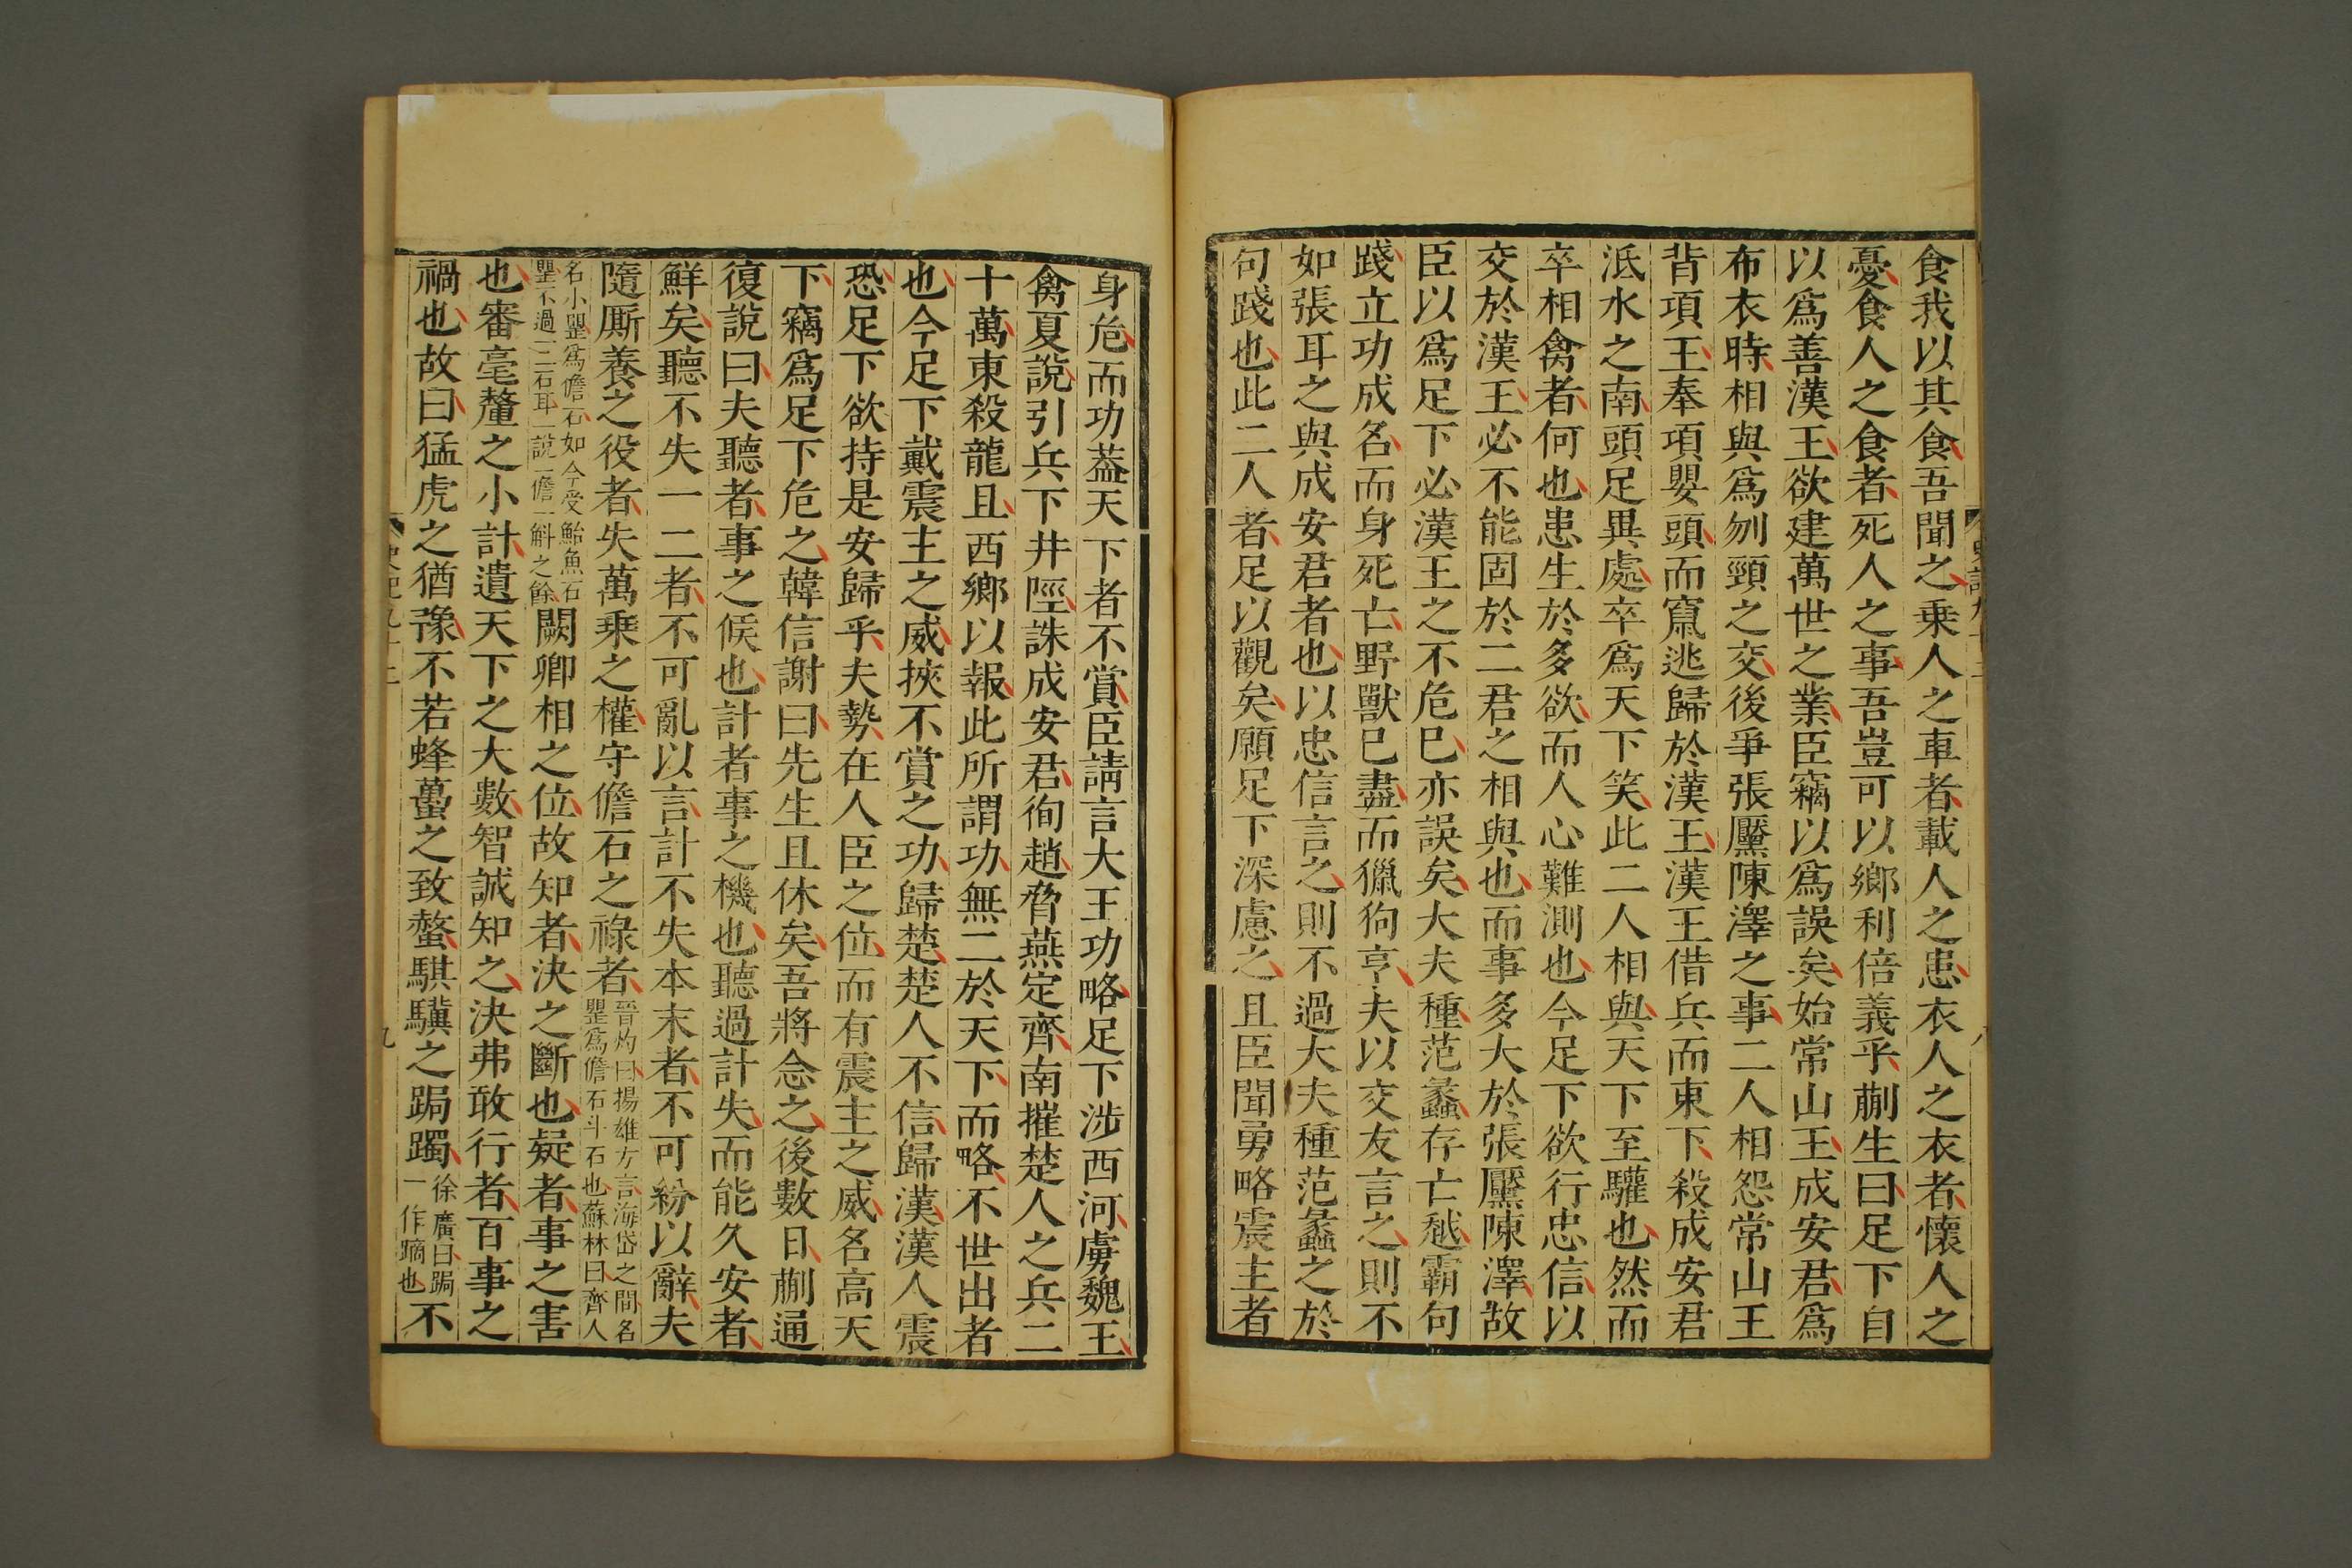 食我以其食吾聞之乗人之車者載人之患衣人之衣者懷人之
憂食人之食者死人之事吾豈可以鄉利倍義乎蒯生曰足下自
以爲善漢王欲建萬世之業臣竊以爲誤矣始常山王成安君爲
布衣時相與爲刎頸之交後爭張黶陳澤之事二人相怨常山王
背項王奉項嬰頭而竄逃歸於漢王漢王借兵而東下殺成安君
泜水之南頭足異處卒爲天下笑此二人相與天下至驩也然而
卒相禽者何也患生於多欲而人心難測也今足下欲行忠信以
交於漢王必不能固於二君之相與也而事多大於張黶陳澤故
臣以爲足下必漢王之不危已亦誤矣大夫種范蠡存亡越霸句
踐立功成名而身死亡野獸已盡而獵狗亨夫以交友言之則不
如張耳之與成安君者也以忠信言之則不過大夫種范蠡之於
句踐也此二人者足以觀矣願足下深慮之且臣聞勇略震主者
身危而功葢天下者不賞臣請言大王功略足下涉西河虜魏王
禽夏說引兵下井陘誅成安君徇趙脅燕定齊南摧楚人之兵二
十萬東殺龍且西鄉以報此所謂功無二於天下而略不世出者
也今足下戴震主之威挾不賞之功歸楚楚人不信歸漢漢人震
恐足下欲持是安歸乎夫勢在人臣之位而有震主之威名高天
下竊爲足下危之韓信謝曰先生且休矣吾將念之後數日蒯通
復說曰夫聽者事之候也計者事之機也聽過計失而能久安者
鮮矣聽不失一二者不可亂以言計不失本末者不可紛以辭夫
隨厮養之役者失萬乗之權守儋石之祿者
晉灼曰揚雄方言海岱之間名
罌爲儋石斗石也蘇林曰齊人
名小罌爲儋石如今受鮐魚石
罌不過一二石耳一說一儋一斛之餘
闕卿相之位故知者決之斷也疑者事之害
也審毫釐之小計遺天下之大數智誠知之決弗敢行者百事之
禍也故曰猛虎之猶豫不若蜂蠆之致螫騏驥之跼躅
徐廣曰跼
一作蹢也
不
史記九十二
九